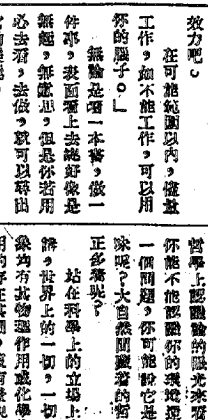 效力吧。
在可能範圍以內,儘量
工作,如不能工作,可以用
你的腦子。」
無論是看一本書,做一
件事,表面看上去總好像是
無趣,無意思,但是你若用
心去看,去做,就可以尋出
哲學上認識論的眼光來
你能不能認識你的環境
一個問題,你可能說它是
味呢?大自然隱藏着的
正多着呢?
站在科學上的立場上
講,世界上的一切,一切
象均有其物理作用或化學
用的存在其間,